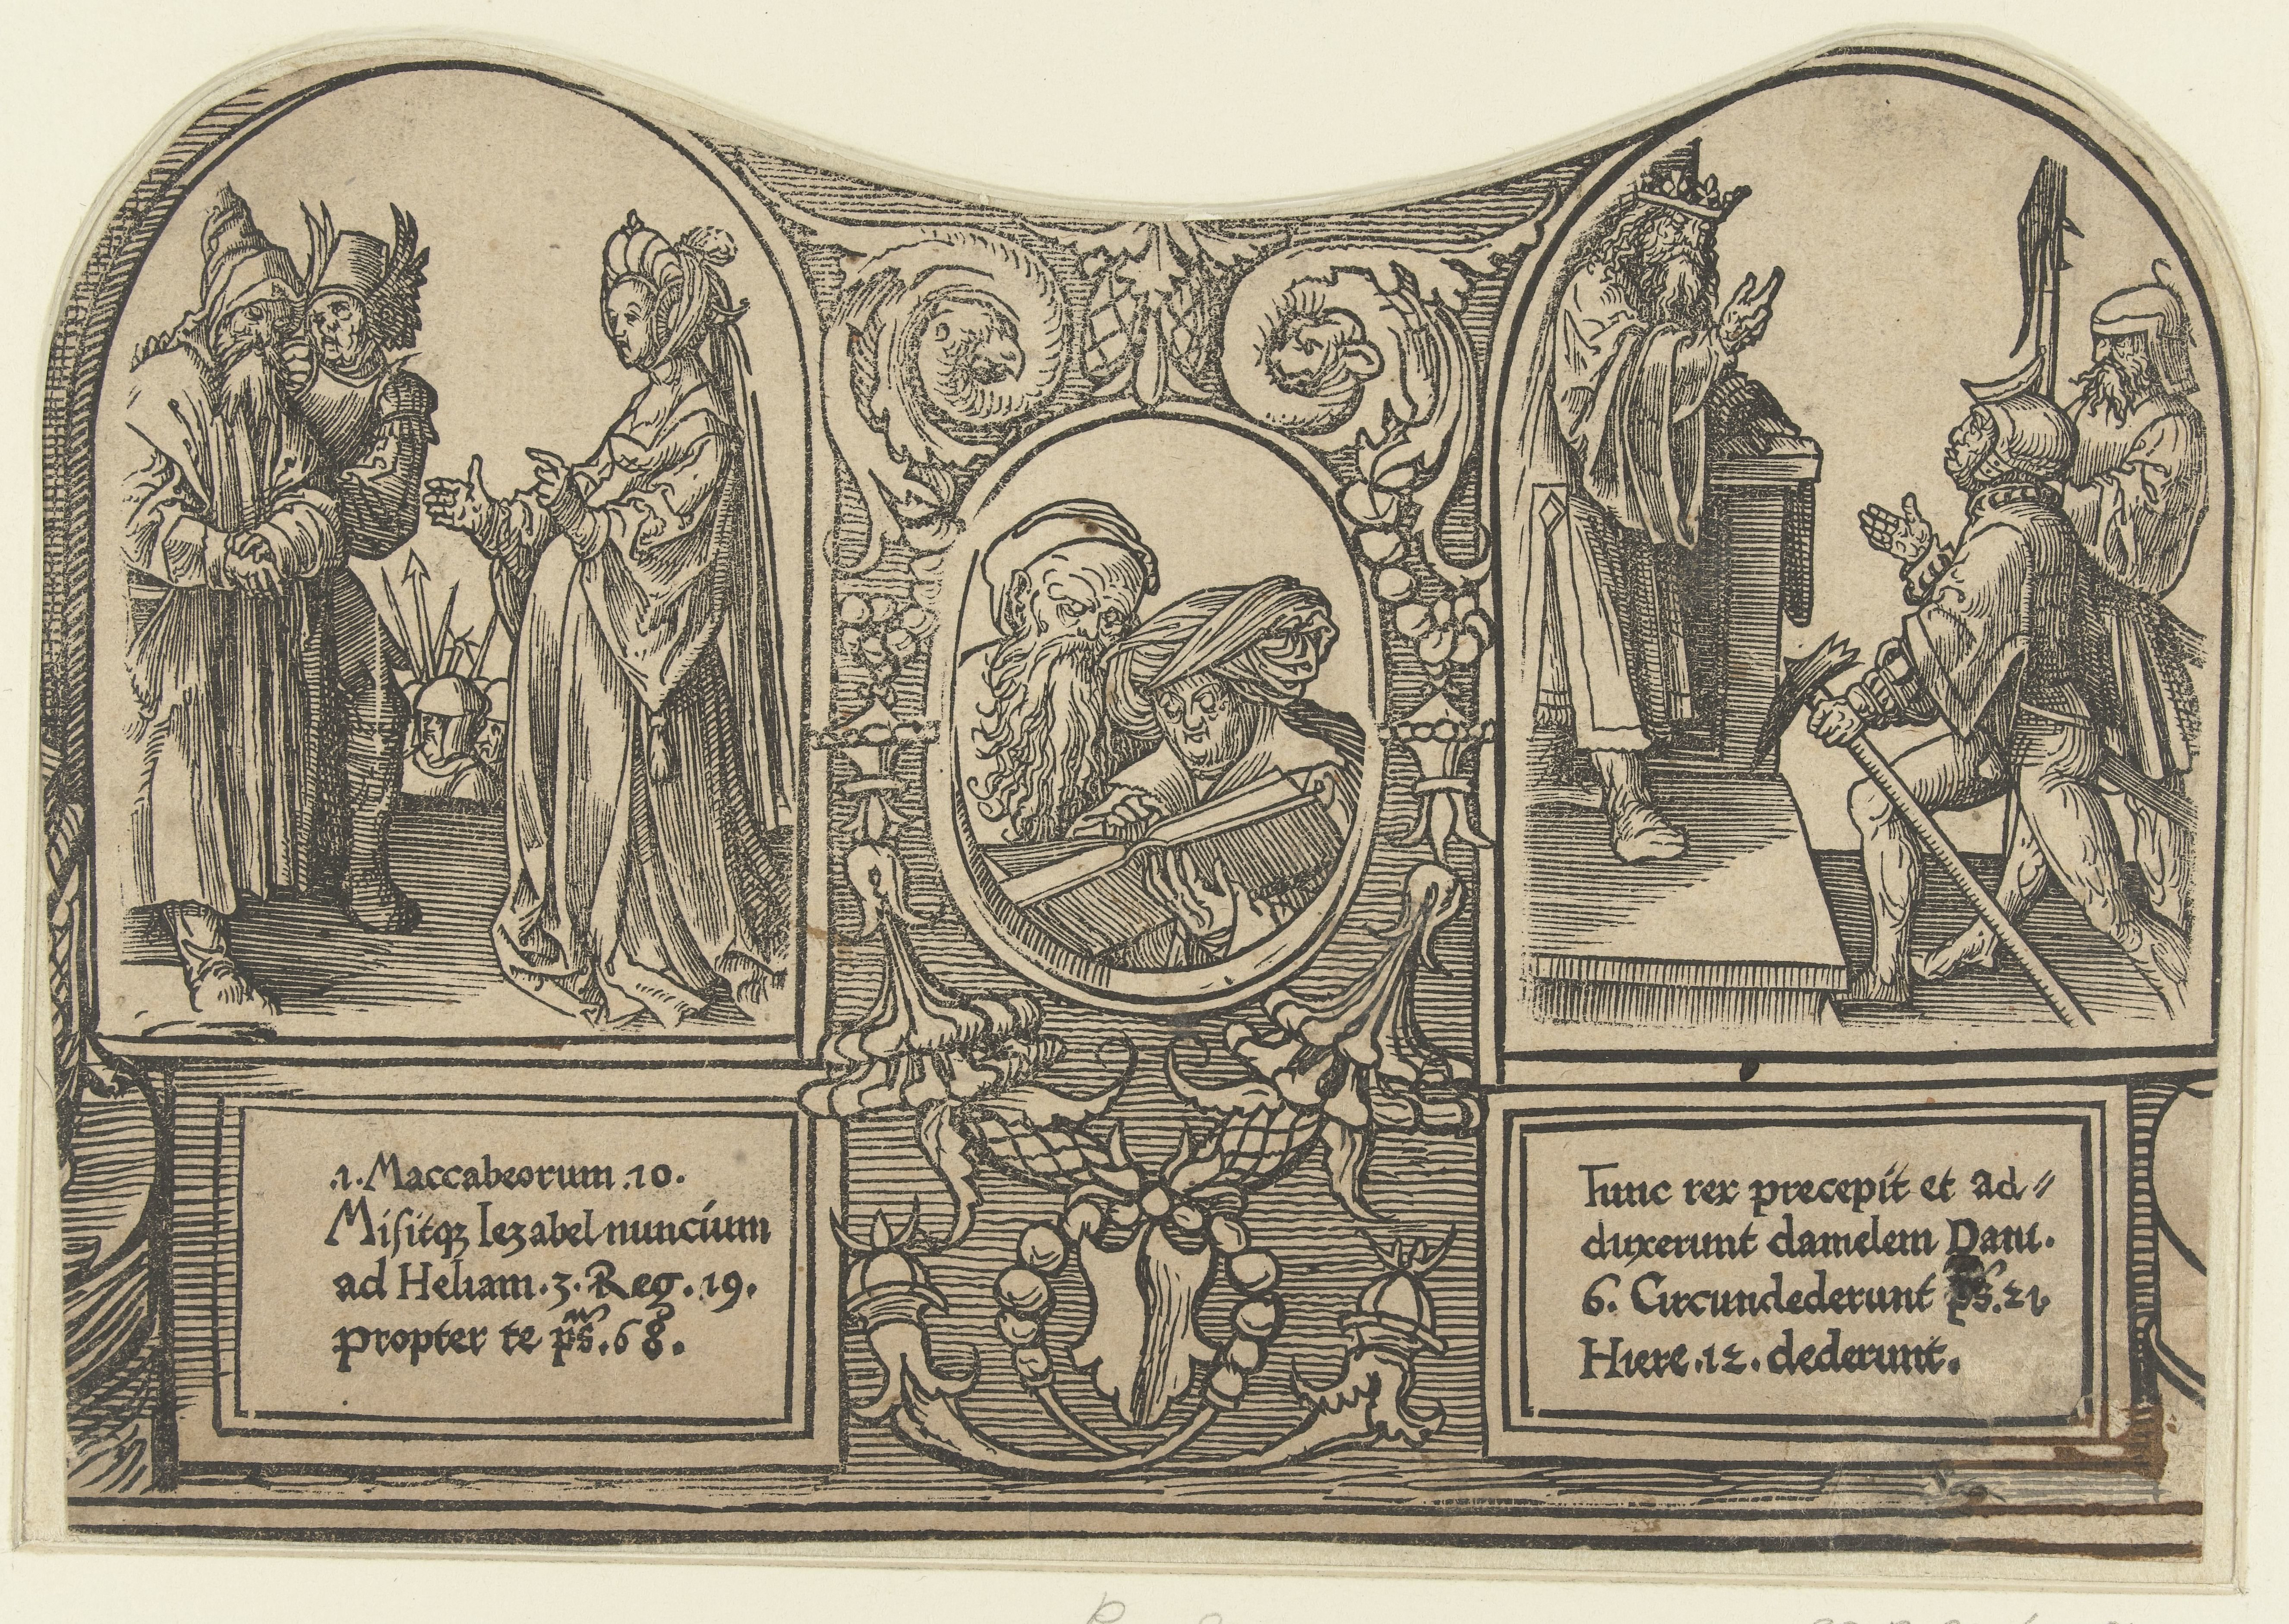 .1. Maccabeorum .10.
Misitqꝫ Iezabel nuncium
ad Heliam .3. Reg. 19.
propter te ps. 68.
Tunc rex precepit et ad⸗
duxerunt danielem Dani.
6. Circundederunt ps. 21
Hiere .12. dederunt.